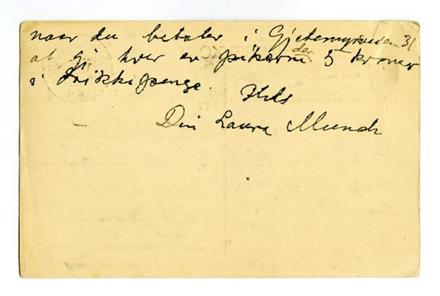 naar du betaler i Gjetemyrsveien 31
at gi hver av pikerne der 5 kroner
i Drikkepenge. Hils
Din Laura Munch